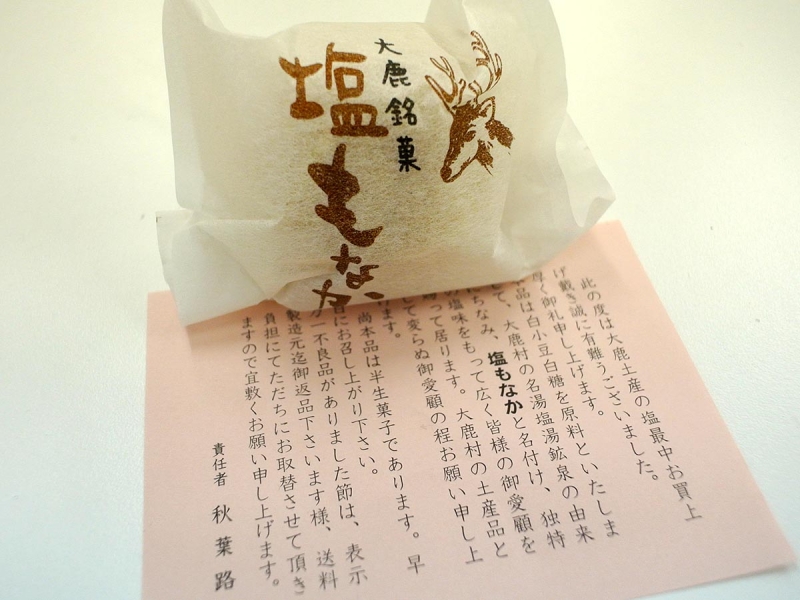 大鹿銘菓
塩もなか
此の度は大鹿土産の塩最中お買上
げ戴き誠に有難うございました。
厚く御礼申し上げます。
品は白小豆白糖を原料といたしま
して、大鹿村の名湯塩湯鉱泉の由来
にちなみ、塩もなかと名付け、独特
の塩味をもって広く皆様の御愛顧を
って居ります。大鹿村の土産品と
して変らぬ御愛顧の程お願い申し上
ます。
尚本品は半生菓子であります。早
にお召し上がり下さい。
一不良品がありました節は、表示
製造元迄御返品下さいます様、送料
負担にてただちにお取替させて頂き
ますので宜敷くお願い申し上げます。
責任者 秋葉路